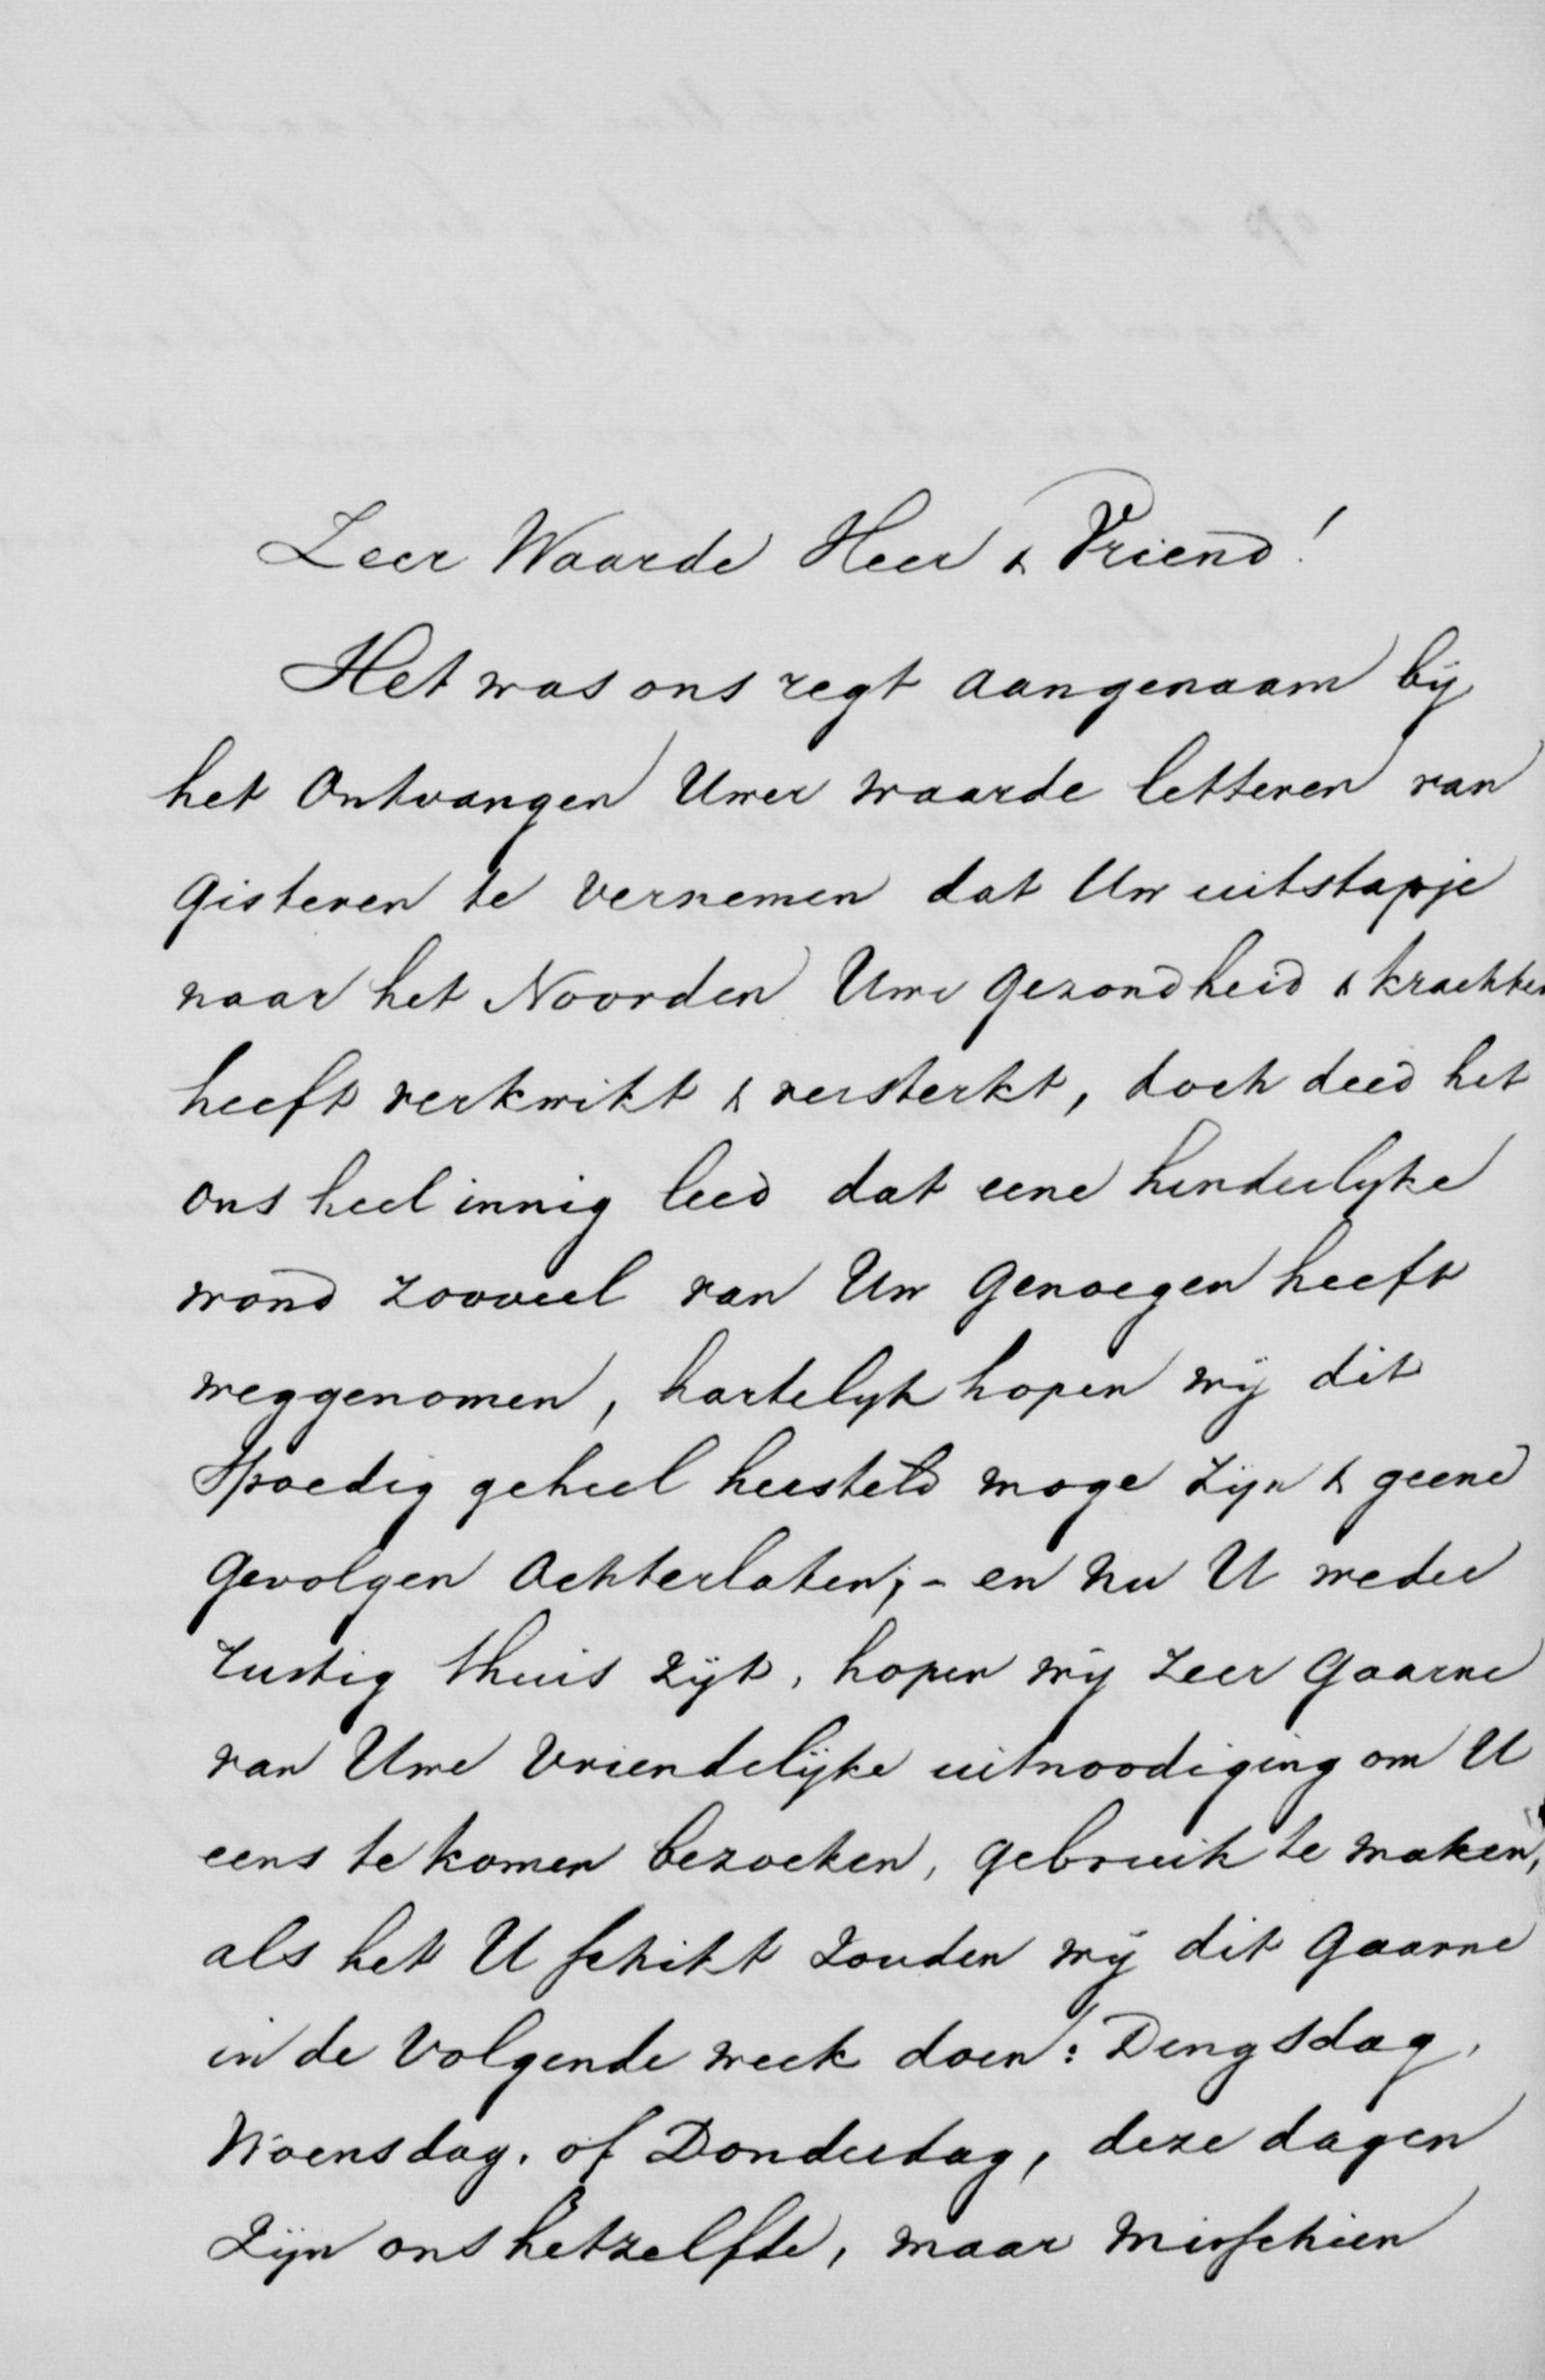 Zeer Waarde Heer & Vriend!
Het was ons regt aangenaam bij
het Ontvangen Uwer waarde letteren van
Gisteren te vernemen dat Uw uitstapje
naar het Noorden Uwe Gezondheid & krachten
heeft verkwikt & versterkt, doch deed het
ons heel innig leed dat eene hinderlyke
wond zooveel van Uw Genoegen heeft
weggenomen, hartelyk hopen wij dit
Spoedig geheel hersteld moge zijn & geene
Gevolgen Achterlaten; - en nu U weder
rustig thuis zijt, hopen wij zeer Gaarne
van Uwe Vriendelijke uitnoodiging om U
eens te komen bezoeken, gebruik te maken,
als het U schikt zouden wij dit Gaarne
in de Volgende week doen: Dengsdag,
Woensdag. of Donderdag, deze dagen
Zijn ons hetzelfde, maar Misschien